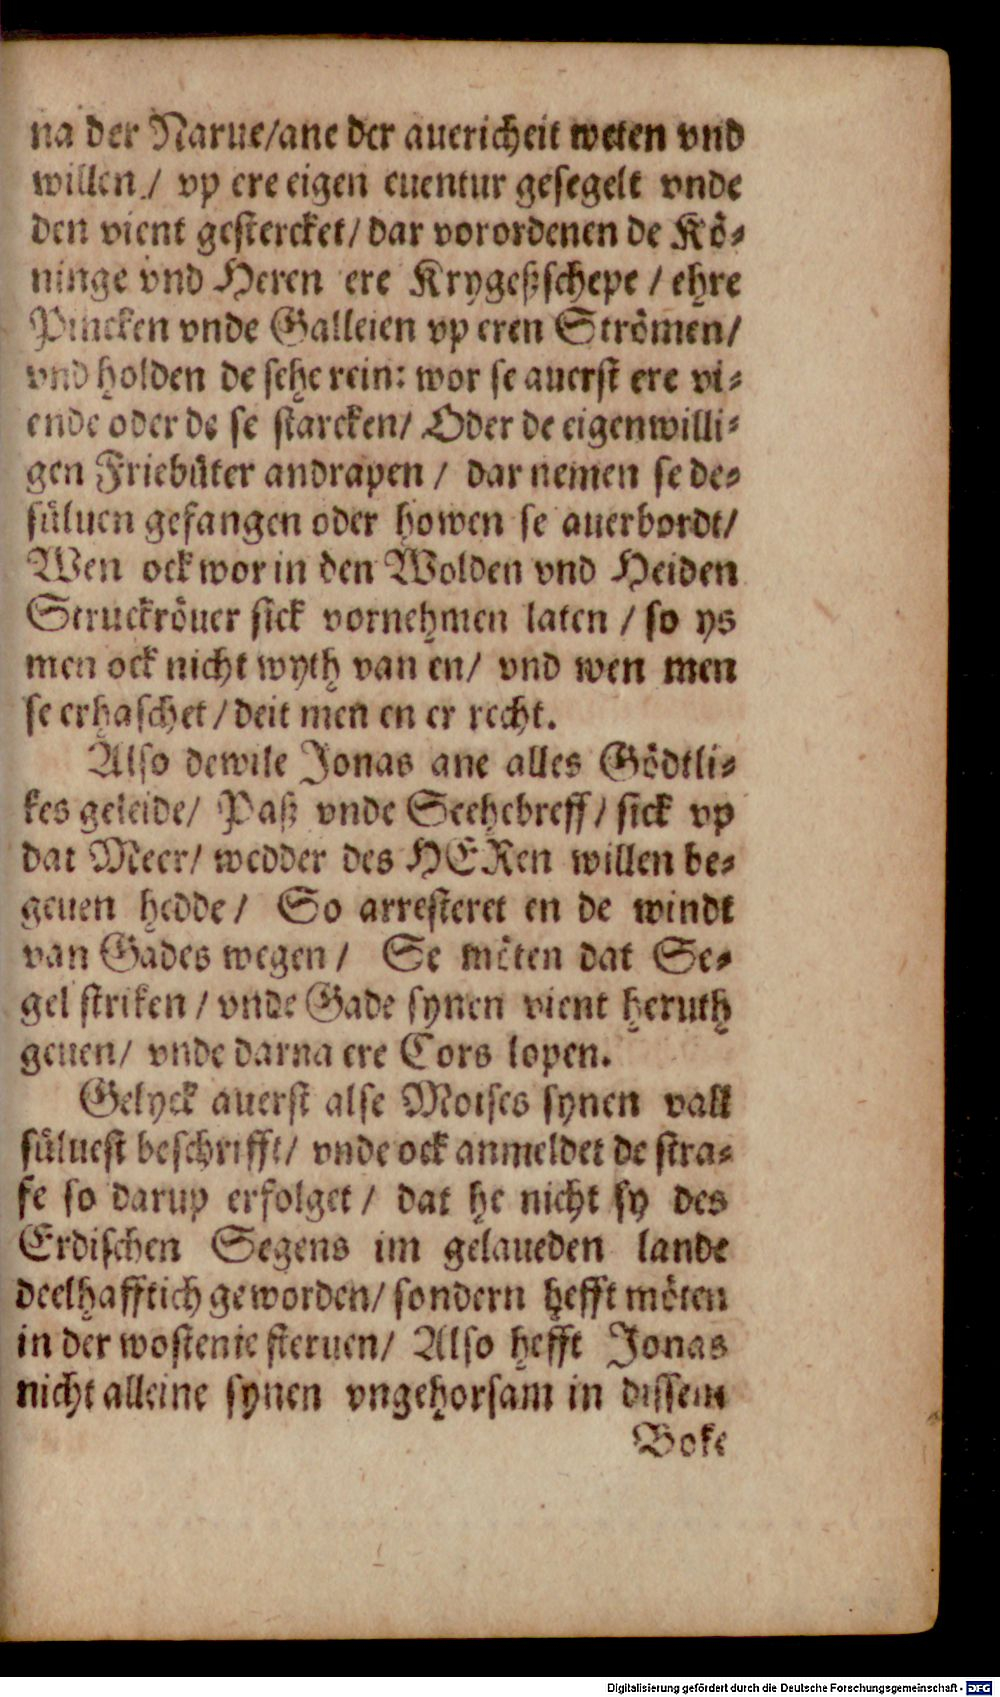 na der Narue/ane der auericheit weten vnd
willen / vp ere eigen euentur gesegelt vnde
den vient gestercket/ dar vorordenen de Kö⸗
ninge vnd Heren ere Krygeßschepe / ehre
Pincken vnde Galleien vp eren Strömen/
vnd holden de sehe rein: wor se auerst ere vi⸗
ende oder de se starcken/ Oder de eigenwilli⸗
gen Friebüter andrapen / dar nemen se de⸗
süluen gefangen oder howen se auerbordt/
Wen ock wor in den Wolden vnd Heiden
Struckröuer sick vornehmen laten / so ys
men ock nicht wyth van en/ vnd wen men
se erhaschet / deit men en er recht.
Also dewile Jonas ane alles Gödtli⸗
kes geleide/ Paß vnde Seehebreff/ sick vp
dat Meer/ wedder des HERen willen be⸗
geuen hedde / So arresteret en de windt
van Gades wegen / Se möten dat Se⸗
gel striken / vnde Gade synen vient heruth
geuen/ vnde darna ere Cors lopen.
Gelyck auerst alse Moises synen vall
süluest beschrifft/ vnde ock anmeldet de stra⸗
fe so darup erfolget / dat he nicht sy des
Erdischen Segens im gelaueden lande
deelhafftich geworden/ sondern hefft möten
in der wostenie steruen/ Also hefft Jonas
nicht alleine synen vngehorsam in dissem
Boke
Digitalisierung gefördert durch die Deutsche Forschungsgemeinschaft - DFG